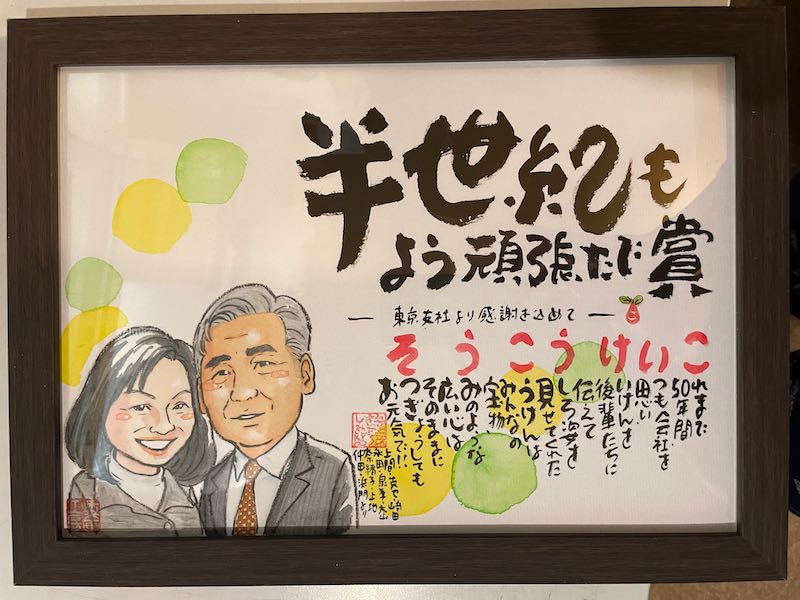 半世紀も
よう頑張たで賞
― 東京支社より感謝を込めて ―
これまで
50年間
いつも会社を
思い
けいけんを
後輩たちに
伝えて
うしろ姿を
見せてくれた
こうけんは
みんなの
宝物
うみのような
広い心は
そのままに
そつぎょうしても
お元気で!!